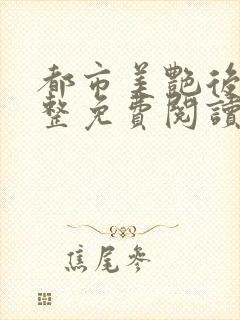 都市美艷後
整免費閱讀
焦尾參